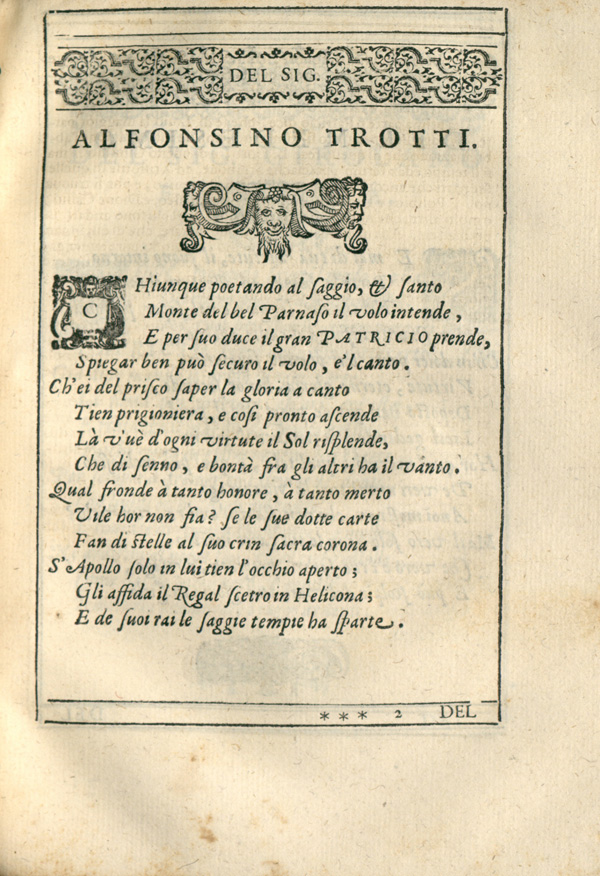 DEL SIG.
ALFONSINO TROTTI.
CHiunque poetando al saggio, & santo
Monte del bel Parnaso il volo intende,
E per suo duce il gran PATRICIO prende,
Spiegar ben può securo il volo, e'l canto.
Ch'ei del prisco saper la gloria a canto
Tien prigioniera, e così pronto ascende
Là v'uè d'ogni virtute il Sol risplende,
Che di senno, e bontà fra gli altri ha il vanto.
Qual fronde à tanto honore, à tanto merto
Vile hor non fia? se le sue dotte carte
Fan di stelle al suo crin sacra corona.
S'Apollo solo in lui tien l'occhio aperto;
Gli affida il Regal scetro in Helicona;
E de suoi rai le saggie tempie ha sparte.
*** 2 DEL